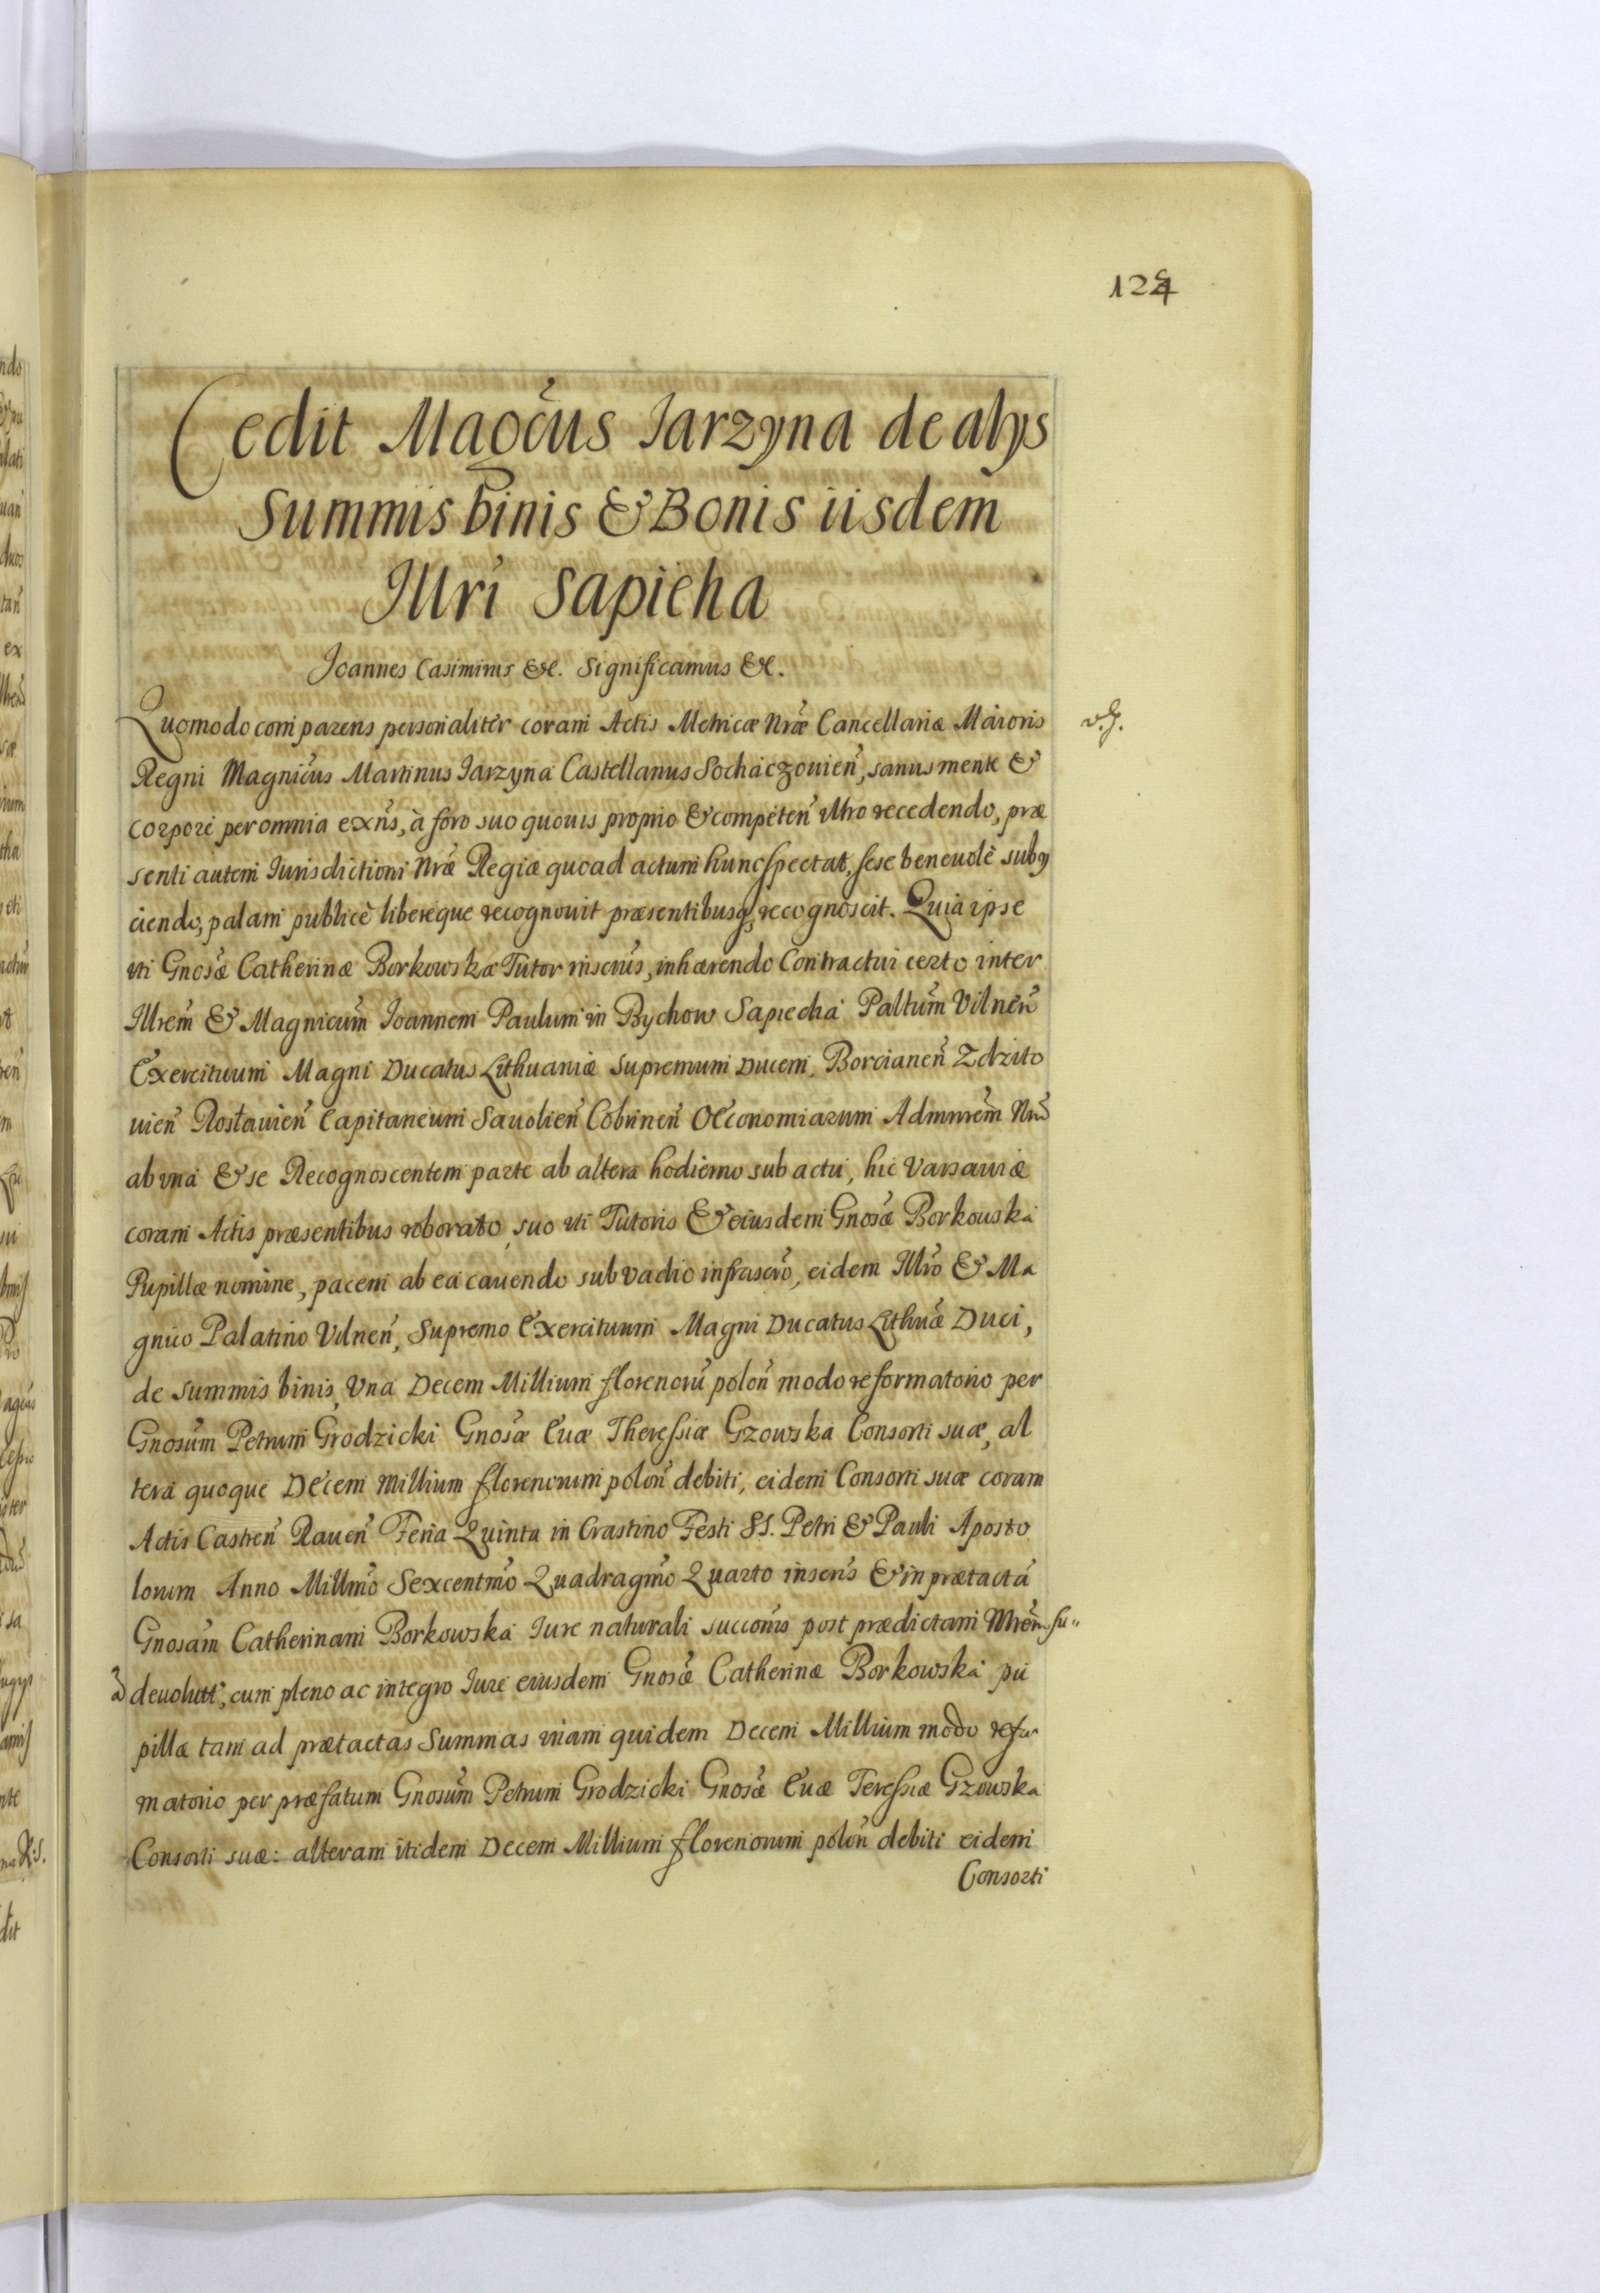 124
Cedit Magcus Iarzyna de alys
Summis binis & Bonis iisdem
Illri Sapieha
Joannes Casimirus &c. Significamus &c.
Quomodo comparens personaliter coram Actis Metricæ Nræ Cancellariæ Maioris
Regni Magnicus Martinus Iarzyna Castellanus Sochaczouien, sanus mente &
corpore per omnia exns, à foro suo quouis proprio & competen vltro recedendo, præ
senti autem Iurisdictioni Nræ Regiæ quoad actum hunc spectat, sese beneuolè suby
ciendo, palam publicè libereque recognouit præsentibusq, recognoscit. Quia ipse
vti Gnosæ Catherinæ Borkowska Tutor inscrus, inhærendo Contractui certo inter
Illrem & Magnicum Joannem Paulum in Bychow Sapiecha Paltum Vilnen
Exercituum Magni Ducatus Lithuaniæ Supremum Ducem, Borcianen Zdzito
uien Rostauien Capitaneum Sauolien Cobrinen Oeconomiarum Admnrem Nrm
ab vna & se Recognoscentem parte ab altera hodierno sub actu, hic Varsauiæ
coram Actis præsentibus roborato, suo vti Tutoris & eiusdem Gnosæ Borkouska
Pupillæ nomine, pacem ab ea cauendo sub vadio infrascro, eidem Illro & Ma
gnico Palatino Vilnen, Supremo Exercituum Magni Ducatus Lithuæ Duci,
de summis binis, Vna Decem Millium florenoru polon modo reformatorio per
Gnosum Petrum Grodzicki Gnosæ Euæ Theressiæ Gzowska Consorti suæ, al
tera quoque Decem Millium florenorum polon debiti, eidem Consorti suæ coram
Actis Castren Rauen Feria Quinta in Crastino Festi SS. Petri & Pauli Aposto
lorum Anno Millmo Sexcentmo Quadragmo Quarto inscris & in prætacta
Gnosam Catherinam Borkowska Iure naturali succonis post prædictam Mrem su
deuolutt, cum pleno ac integro Iure eiusdem Gnosæ Catherinæ Borkowska pu
pillæ tam ad prætactas Summas vnam quidem Decem Millium modo refor
matorio per præfatum Gnosum Petrum Grodzicki Gnosæ Euæ Teressiæ Gzowska
Consorti suæ: alteram itidem Decem Millium florenorum polon debiti eidem
Consorti